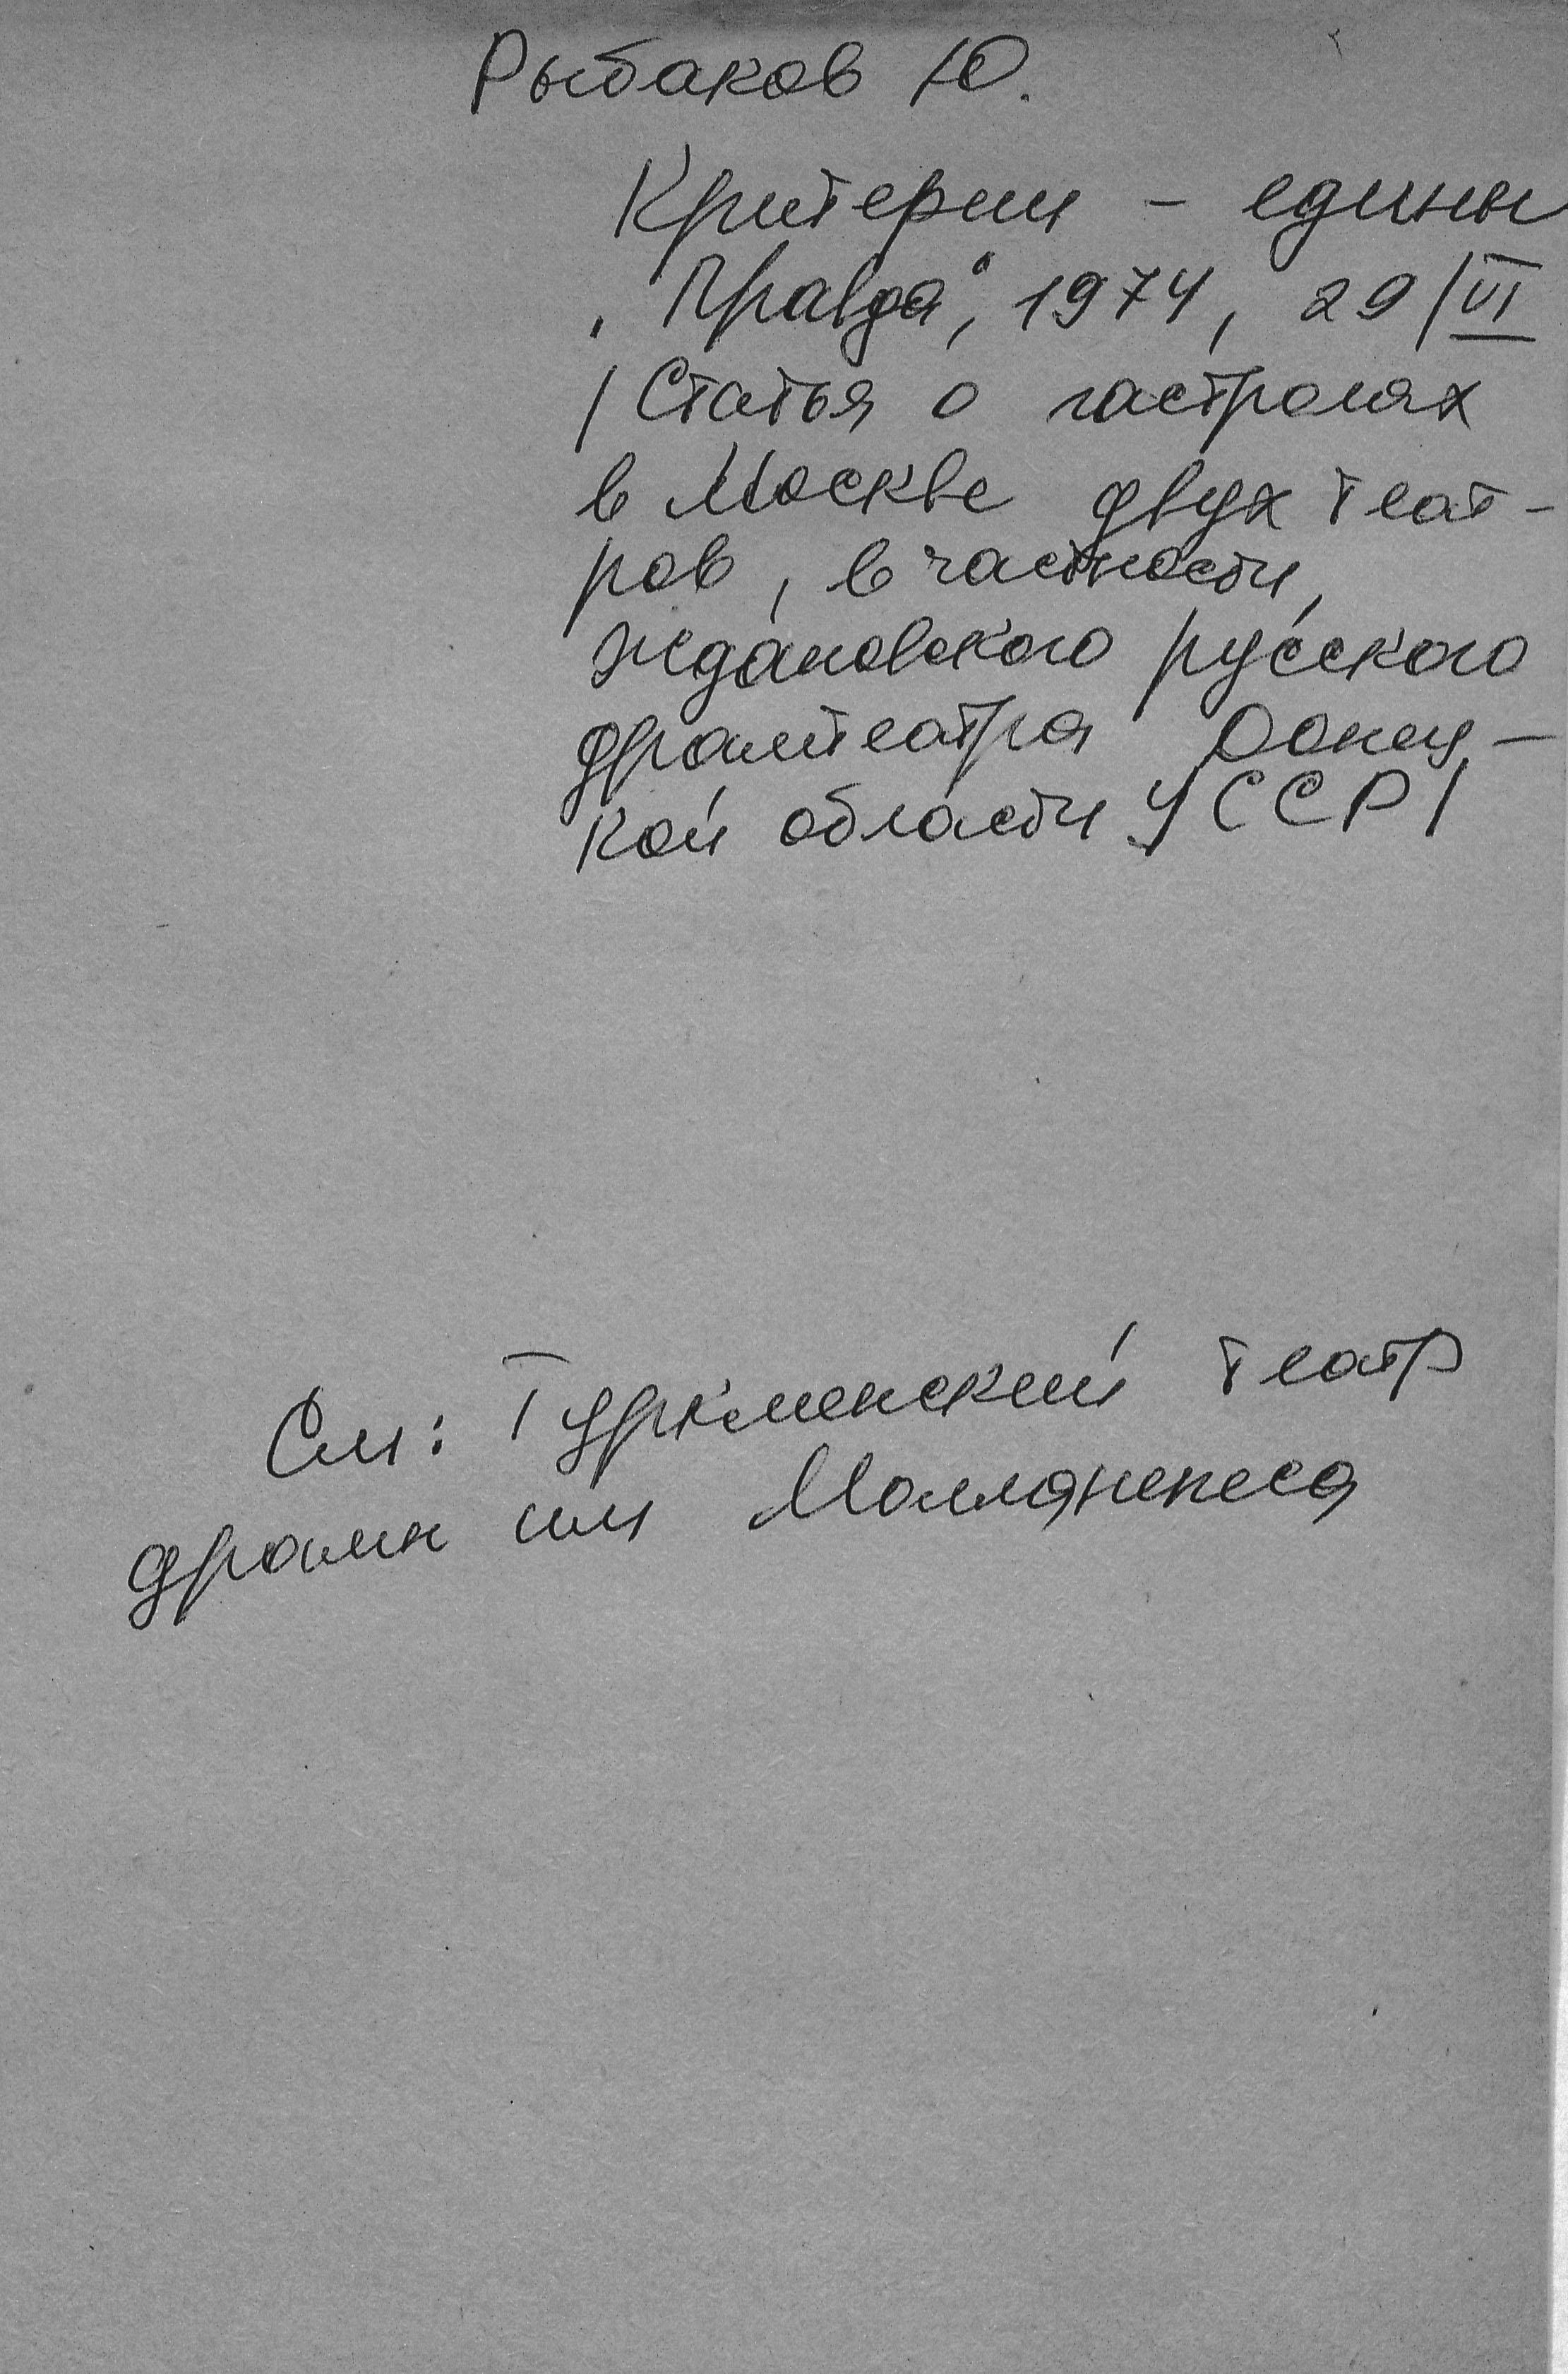 Рыбаков Ю.
Критерии – едины
„Правда“, 1974, 29/VI
/Статья о гастролях
в Москве двух теат-
ров, в частности,
ждановского русского
драмтеатра Донец-
кой области УССР/
См: Туркменский театр
драмы им Молланепеса